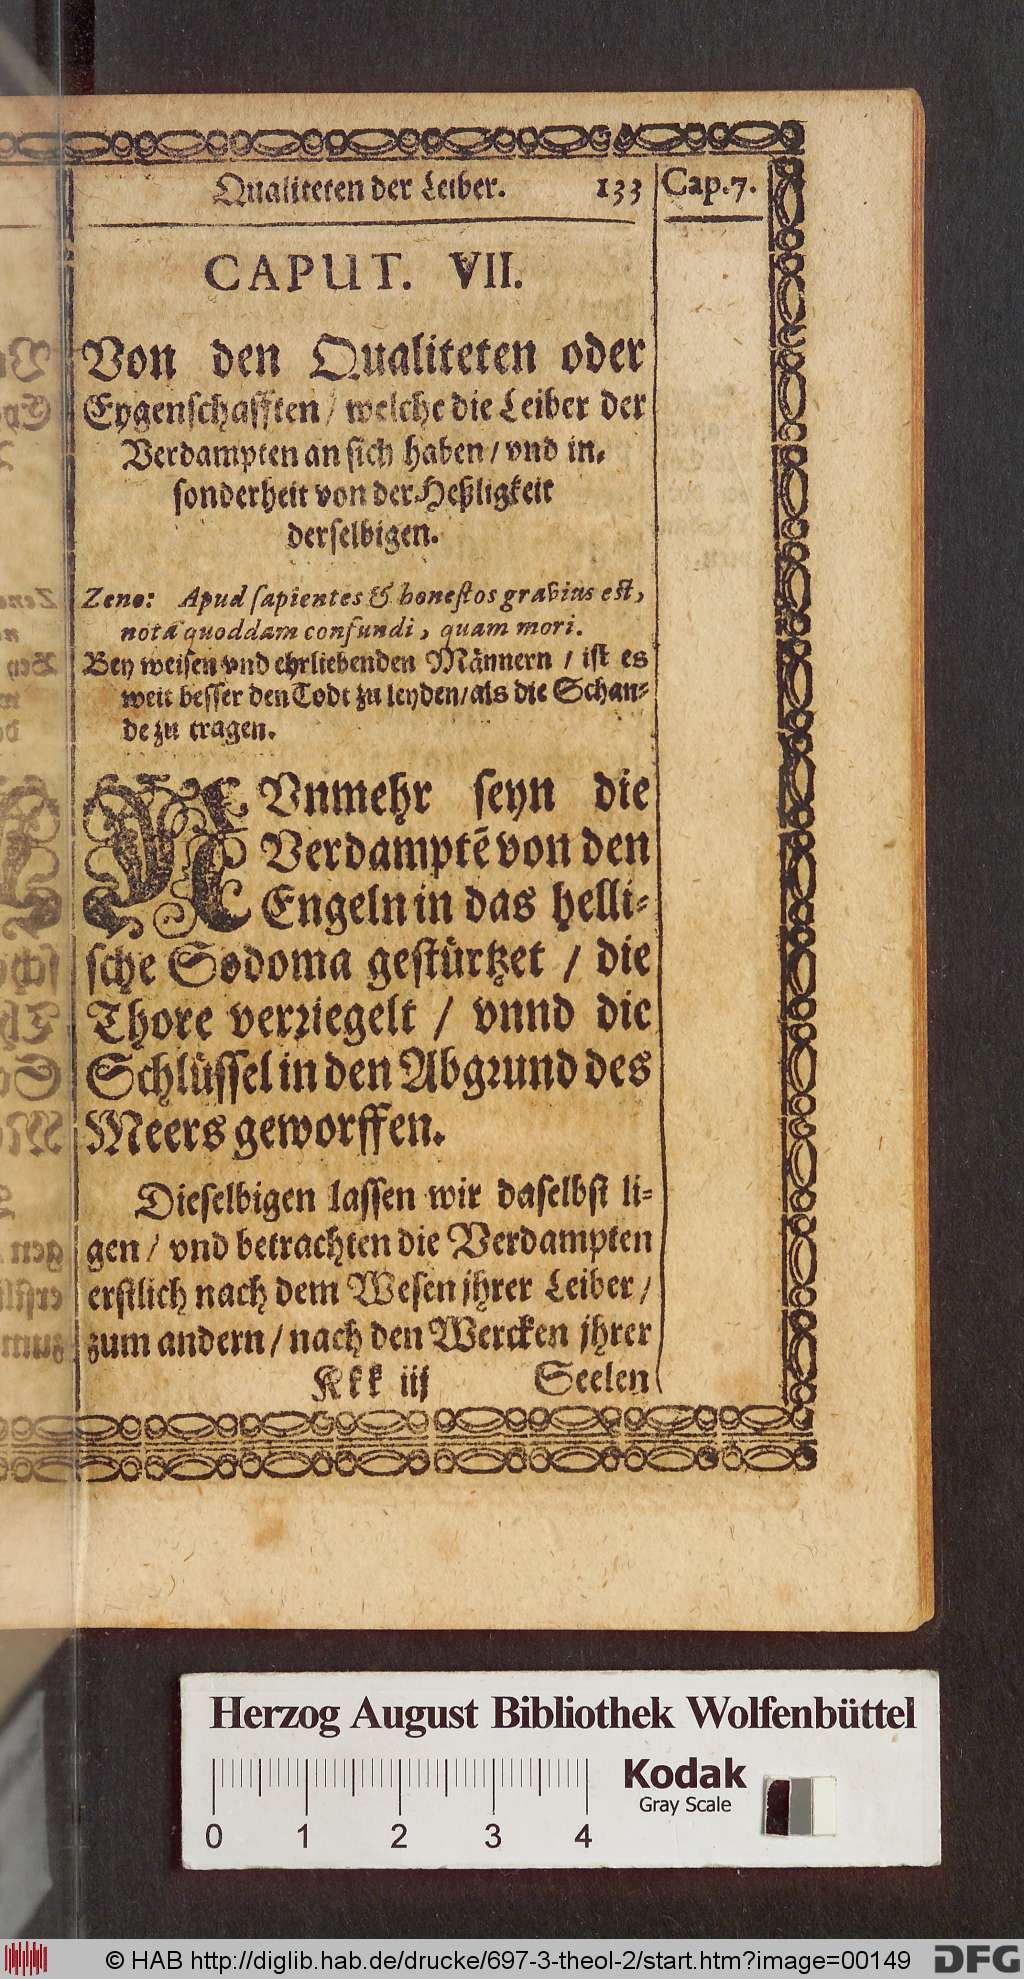 Qualiteten der Leiber. 133 Cap.7.
CAPUT. VII.
Von den Qualiteten oder
Eygenschafften / welche die Leiber der
Verdampten an sich haben / vnd in-
sonderheit von der Heßligkeit
derselbigen.
Zeno: Apud sapientes & honestos gravius est,
notâ quoddam confundi, quam mori.
Bey weisen vnd ehrliebenden Männern / ist es
weit besser den Todt zu leyden / als die Schan-
de zu tragen.
NVnmehr seyn die
Verdamptẽ von den
Engeln in das helli-
sche Sodoma gestürtzet / die
Thore verriegelt / vnnd die
Schlüssel in den Abgrund des
Meers geworffen.
Dieselbigen lassen wir daselbst li-
gen / vnd betrachten die Verdampten
erstlich nach dem Wesen jhrer Leiber /
zum andern / nach den Wercken jhrer
Kkk iij Seelen
Herzog August Bibliothek Wolfenbüttel
Kodak
Gray Scale
0 1 2 3 4
© HAB http://diglib.hab.de/drucke/697-3-theol-2/start.htm?image=00149
DFG